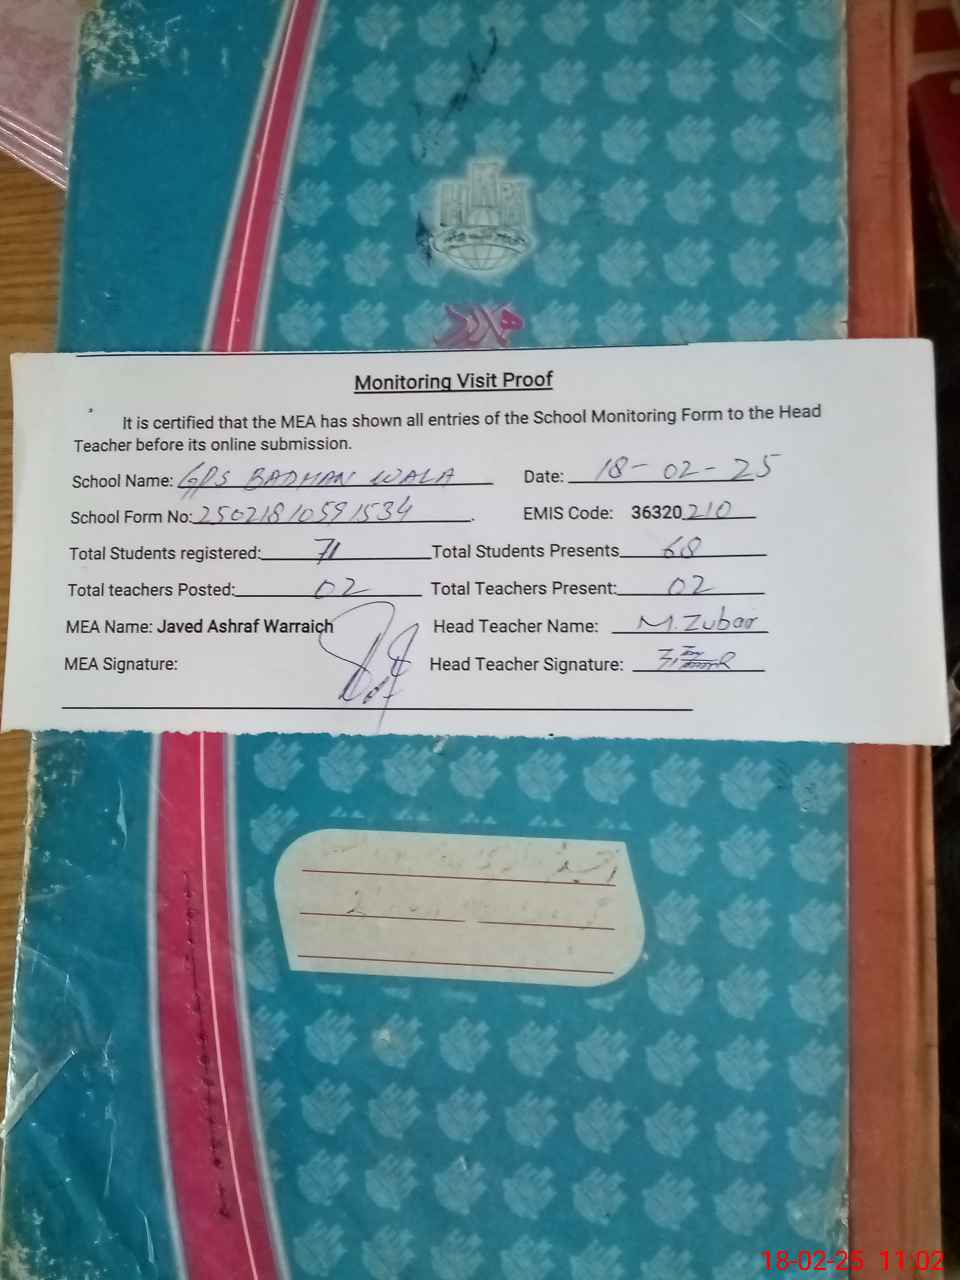 Monitoring Visit Proof
It is certified that the MEA has shown all entries of the School Monitoring Form to the Head
Teacher before its online submission.
School Name: GPS BADHAN WALA Date: 18-02-25
School Form No: 25021810591534 EMIS Code: 36320210
Total Students registered: 71 Total Students Presents 68
Total teachers Posted: 02 Total Teachers Present: 02
MEA Name: Javed Ashraf Warraich Head Teacher Name: M. Zubair
MEA Signature: Head Teacher Signature:
18-02-25 11:02